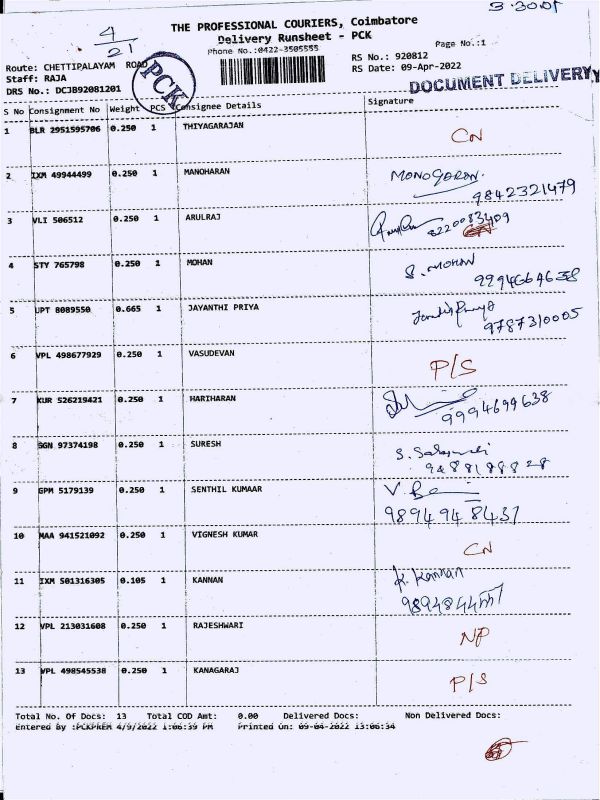 3.30.01
4/21
THE PROFESSIONAL COURIERS, Coimbatore
Delivery Runsheet - PCK
Phone No.:0422-3505555
Page No.:1
RS No.: 920812
RS Date: 09-Apr-2022
Route: CHETTIPALAYAM ROAD
Staff: RAJA
DRS No.: DCJB92081201
PCK
DOCUMENT DELIVERY
S No Consignment No Weight PCS Consignee Details Signature
1 BLR 2951595706 0.250 1 THIYAGARAJAN CN
2 IXM 49944499 0.250 1 MANOHARAN MONOGARAN.
9842321479
3 VLI 506512 0.250 1 ARULRAJ 8220083409
4 STY 765798 0.250 1 MOHAN S. MOHAN
9994664638
5 UPT 8089550 0.665 1 JAYANTHI PRIYA
9787310005
6 VPL 498677929 0.250 1 VASUDEVAN P/S
7 KUR 526219421 0.250 1 HARIHARAN
9994699638
8 SGN 97374198 0.250 1 SURESH S.
9488188828
9 GPM 5179139 0.250 1 SENTHIL KUMAAR V.
9894948437
10 MAA 941521092 0.250 1 VIGNESH KUMAR CN
11 IXM 501316305 0.105 1 KANNAN K. Kannan
12 VPL 213031608 0.250 1 RAJESHWARI NP
13 VPL 498545538 0.250 1 KANAGARAJ P/S
Total No. Of Docs: 13 Total COD Amt: 0.00 Delivered Docs: Non Delivered Docs:
Entered By :PCKPREM 4/9/2022 1:06:39 PM Printed On: 09-04-2022 13:06:34